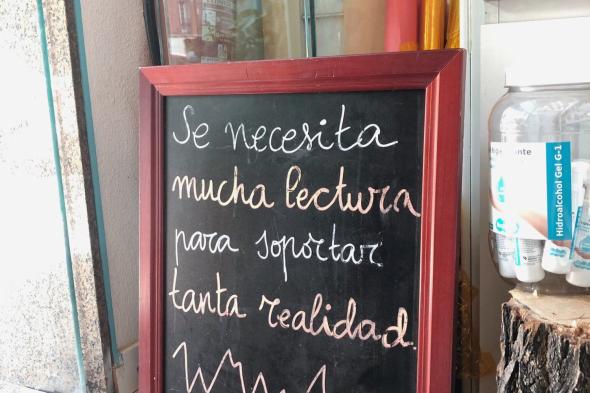 Se necesita
mucha lectura
para soportar
tanta realidad.
Hidroalcohol Gel G-1